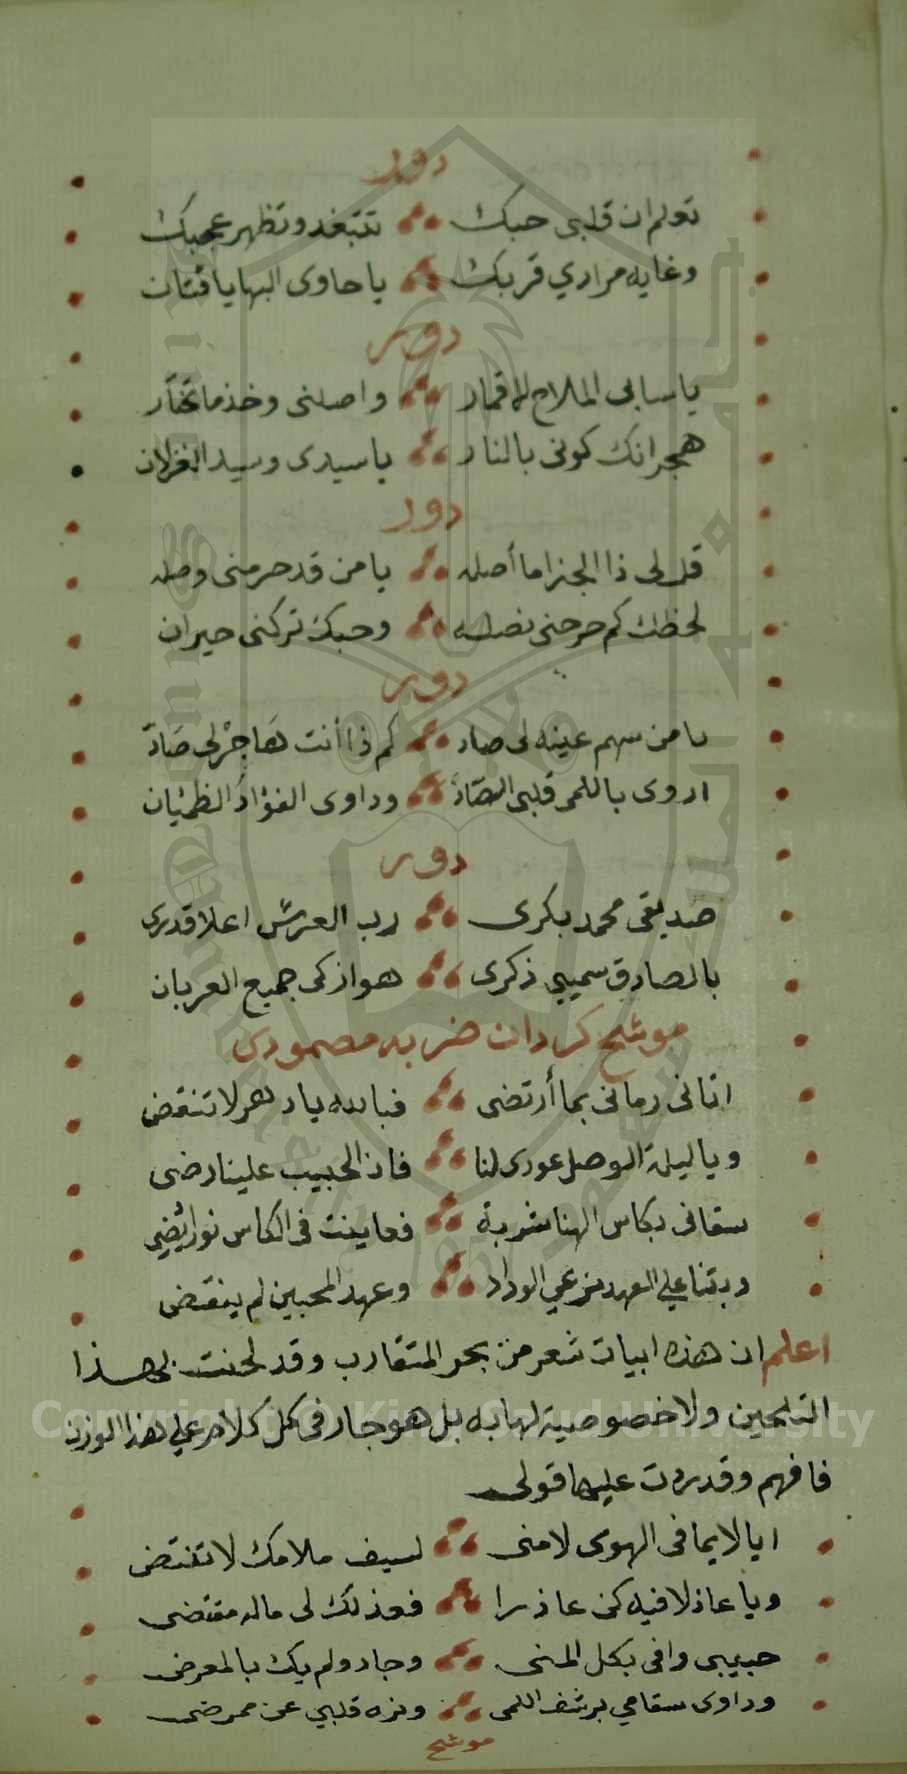 دور
تعلم ان قلبى حبك تتبغدد وتظهر عجبك
وغايه مرادي قربك يا حاوى البها يا فتان
دور
يا سابى الملاح الاقمار واصلنى وخذ ما تختار
هجرانك كونى بالنار يا سيدى وسيد الغزلان
دور
قل لى ذا الجزا ما أصله يا من قد حرمنى وصله
لحظك كم جرحنى نصله وحبك تركنى حيران
دور
يا من سهم عينه لى صاد كم ذا أنت هَاجرْ لى صَادّ
اروى باللمى قلبى الصّادْ وداوى الفؤاد الظمئان
دور
صديقى محمد بكرى رب العرش اعلا قدرى
بالصادق سميي ذكرى هو ازكى جميع العربان
موشح كردان ضربه مصمودى
اتانى زمانى بما أرتضى فبالله يا دهر لا تنقض
ويا ليلة الوصل عودى لنا فاذ الحبيب علينا رضى
سقانى بكاس الهنا شربة فعاينت فى الكاس نورا يُضِي
وبتنا على العهد نرعي الوداد وعهد المحبين لم ينقض
اعلم ان هذه ابيات شعر من بحر المتقارب وقد لحنت بهذا
التلحين ولا خصوصية لها به بل هو جار فى كل كلام على هذا الوزن
فافهم وقد زدت عليها قولى
ايا لايما فى الهوى لامنى لسيف ملامك لا تنتض
ويا عاذلا فيه كن عاذرا فعذلك لى ماله مقتضى
حبيبى وافى بكل المنى وجاد ولم يك بالمعرض
وداوى سقامي برشف اللمى ونزه قلبي عن ممرضى
موشح